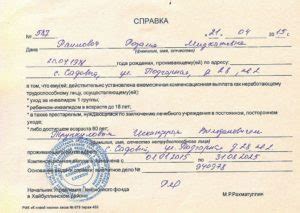 СПРАВКА
№ 587 21. 04 2015 г.
Дана
(фамилия, имя, отчество)
25.04.1978 года рождения, проживающей(ему) по адресу:
с. Садовый, ул. Подгорная, д. 28 кв 2
в том что ему(ей) действительно установлена ежемесячная компенсационная выплата как неработающему
трудоспособному лицу, осуществляющему уход:
* уход за инвалидом 1 группы,
* ребенком-инвалидом в возрасте до 18 лет;
* а также престарелым, нуждающимся по заключению лечебного учреждения в постоянном, постороннем
уходе,
либо достигшим возраста 80 лет
(фамилия, имя, отчество)
с. Садовый, ул. Подгорная д. 28 кв. 2
Компенсационная выплата с 01.04.2015 по 31.08.2025
040778
Начальник Управления Пенсионного фонда
в Хайбуллинском районе М.Р.Рахматуллин